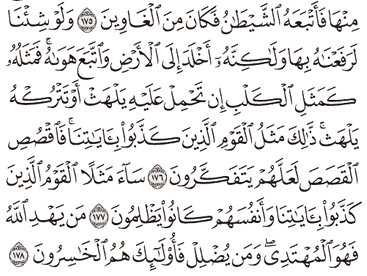 مِنْهَا فَأَتْبَعَهُ ٱلشَّيْطَٰنُ فَكَانَ مِنَ ٱلْغَاوِينَ ١٧٥ وَلَوْ شِئْنَا
لَرَفَعْنَٰهُ بِهَا وَلَٰكِنَّهُۥٓ أَخْلَدَ إِلَى ٱلْأَرْضِ وَٱتَّبَعَ هَوَىٰهُ ۚ فَمَثَلُهُۥ
كَمَثَلِ ٱلْكَلْبِ إِن تَحْمِلْ عَلَيْهِ يَلْهَثْ أَوْ تَتْرُكْهُ
يَلْهَث ۚ ذَّٰلِكَ مَثَلُ ٱلْقَوْمِ ٱلَّذِينَ كَذَّبُوا۟ بِـَٔايَٰتِنَا ۚ فَٱقْصُصِ
ٱلْقَصَصَ لَعَلَّهُمْ يَتَفَكَّرُونَ ١٧٦ سَآءَ مَثَلًا ٱلْقَوْمُ ٱلَّذِينَ
كَذَّبُوا۟ بِـَٔايَٰتِنَا وَأَنفُسَهُمْ كَانُوا۟ يَظْلِمُونَ ١٧٧ مَن يَهْدِ ٱللَّهُ
فَهُوَ ٱلْمُهْتَدِى ۖ وَمَن يُضْلِلْ فَأُو۟لَٰٓئِكَ هُمُ ٱلْخَٰسِرُونَ ١٧٨